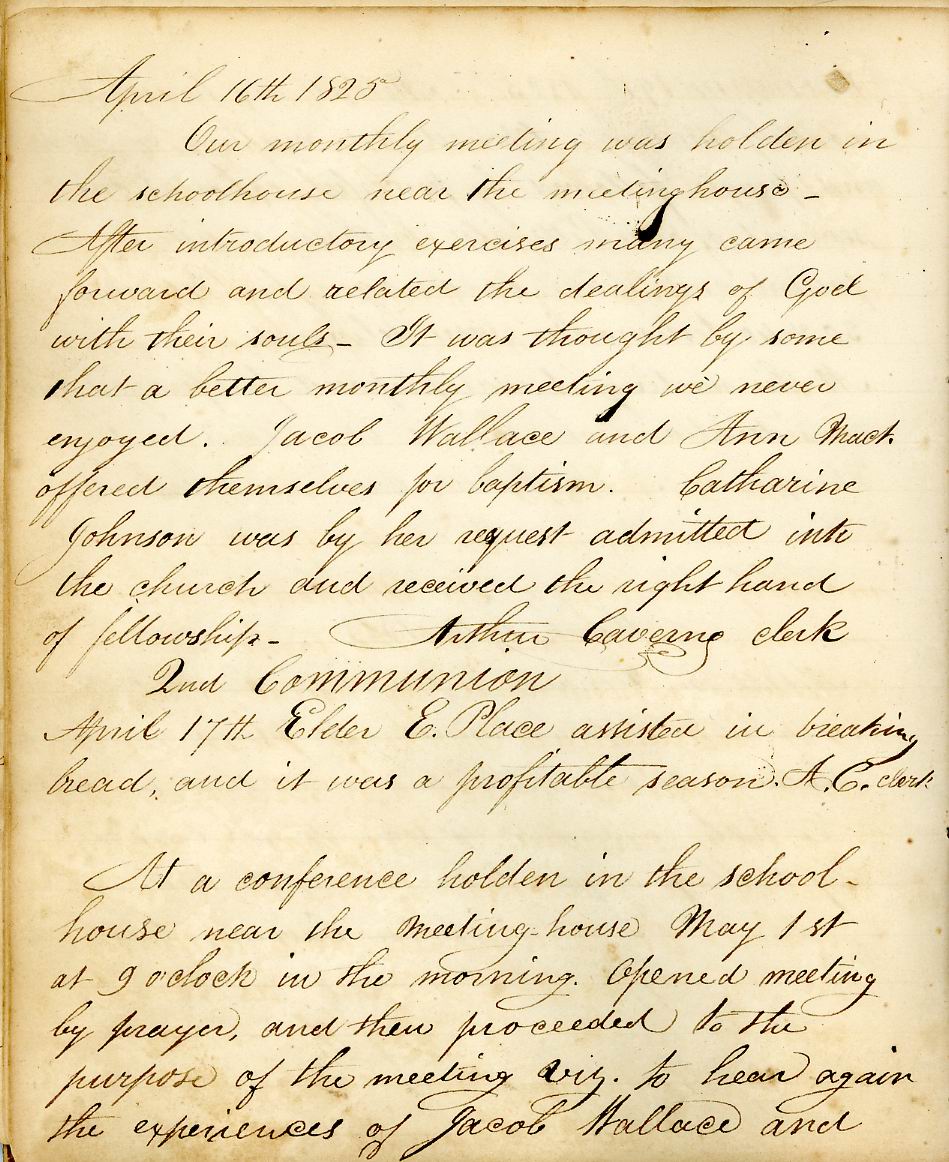 April 16th 1825
Our monthly meeting was holden in
the schoolhouse near the meetinghouse -
After introductory exercises many came
forward and related the dealings of God
with their souls - It was thought by some
that a better monthly meeting we never
enjoyed. Jacob Wallace and Ann Mact.
offered themselves for baptism. Catharine
Johnson was by her request admitted into
the church and received the right hand
of fellowship - Arthur Caverno clerk
2nd Communion
April 17th Elder E. Place assisted in breaking
bread, and it was a profitable season. A. C. clerk
At a conference holden in the school-
house near the Meeting-house May 1st
at 9 oclock in the morning. Opened meeting
by prayer, and then proceeded to the
purpose of the meeting viz. to hear again
the experiences of Jacob Wallace and